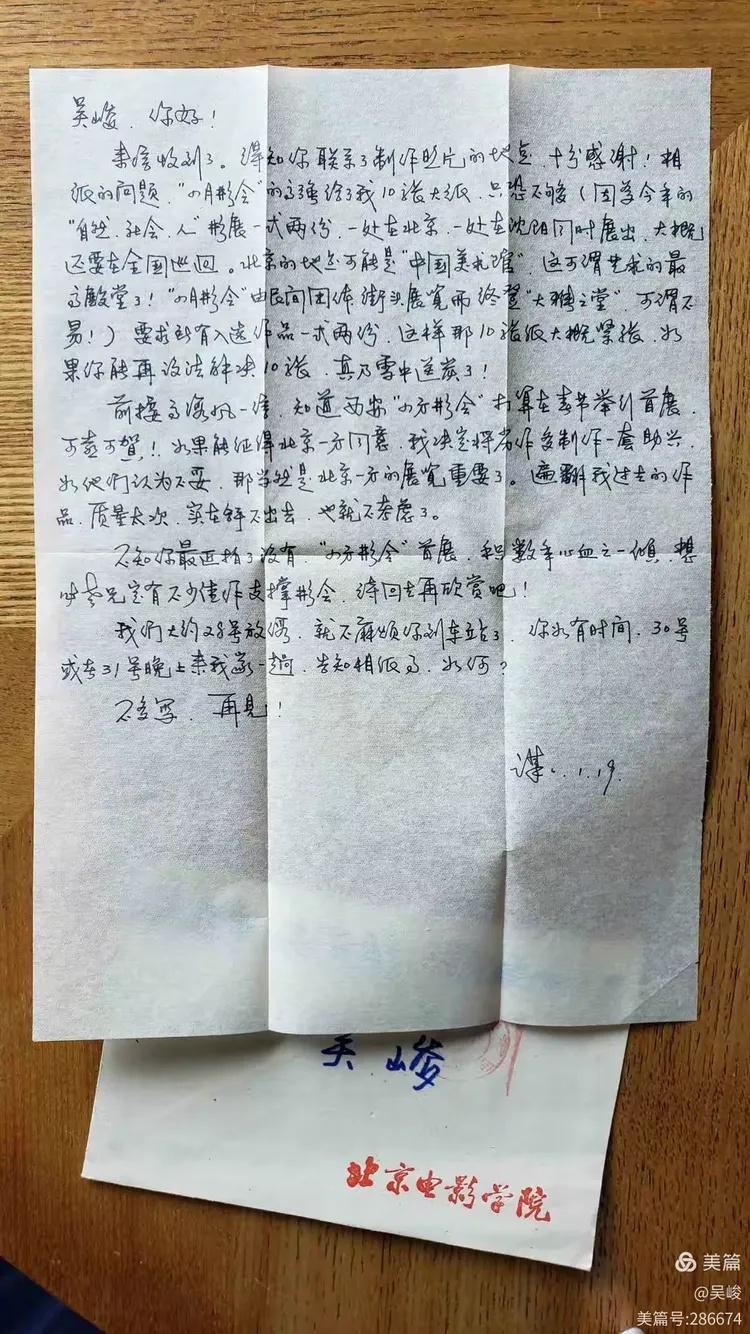 吴峻，你好！
来信收到了。得知你联系了制作照片的地点，十分感谢！相
纸的问题，“四月影会”的高强给了我10张大纸，只恐不够（因为今年的
“自然.社会.人”影展一式两份，一处在北京，一处在沈阳同时展出，大概
还要在全国巡回。北京的地点可能是“中国美术馆”，这可谓艺术的最
高殿堂了！“四月影会”由民间团体，街头展览而终登“大雅之堂”，可谓不
易！）要求所有入选作品一式两份，这样那10张纸大概紧张，如
果你能再设法解决10张，真乃雪中送炭了！
前接高洛风一信，知道西安“四方影会”打算在春节举行首展，
可喜可贺！如果能征得北京一方同意，我决定将劣作多制作一套助兴，
如他们认为不妥，那当然是北京一方的展览重要了。遍翻我过去的作
品，质量太次，实在拿不出去，也就不考虑了。
不知你最近拍了没有，“四方影会”首展，积数年心血之一倾，想
必老兄定有不少佳作支撑影会，待回去再欣赏吧！
我们大约28号放假，就不麻烦你到车站了，你如有时间，30号
或者31号晚上来我家一趟，告知相纸事，如何？
不多写，再见！
谋 1.19.
吴峻
北京电影学院
美篇
@吴峻
美篇号:286674